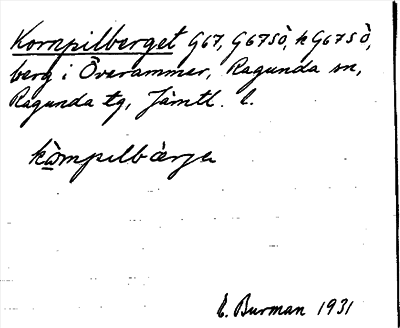 Kornpilberget G67, G67SÖ, h G67SÖ,
berg i Överammer, Ragunda sn,
Ragunda tg, Jämtl. l.
kòmpilbärje
E. Burman 1931